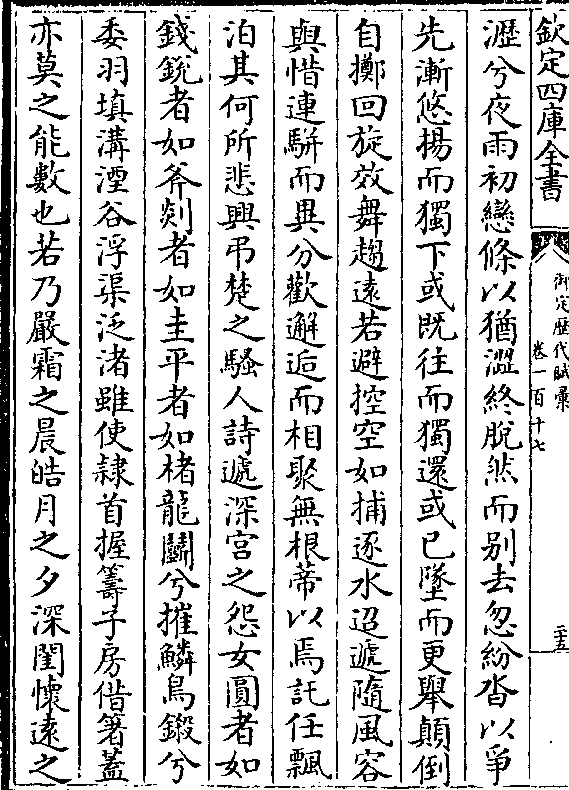 欽定四庫全書
御定歷代賦彙
卷一百十七
二五
瀝兮夜雨初戀條以猶澀終脫然而别去忽紛沓以爭
先漸悠揚而獨下或既往而獨還或已墜而更舉顛倒
自擲回旋效舞趨遠若避控空如捕逐水迢遞隨風容
與惜連駢而異分歡邂逅而相聚無根蒂以焉託任飄
泊其何所悲興弔楚之騷人詩遞深宮之怨女圓者如
錢銳者如斧剡者如圭平者如楮龍鬭兮摧鱗鳥鎩兮
委羽填溝湮谷浮渠泛渚雖使隸首握籌子房借箸蓋
亦莫之能數也若乃嚴霜之晨皓月之夕深閨懷遠之